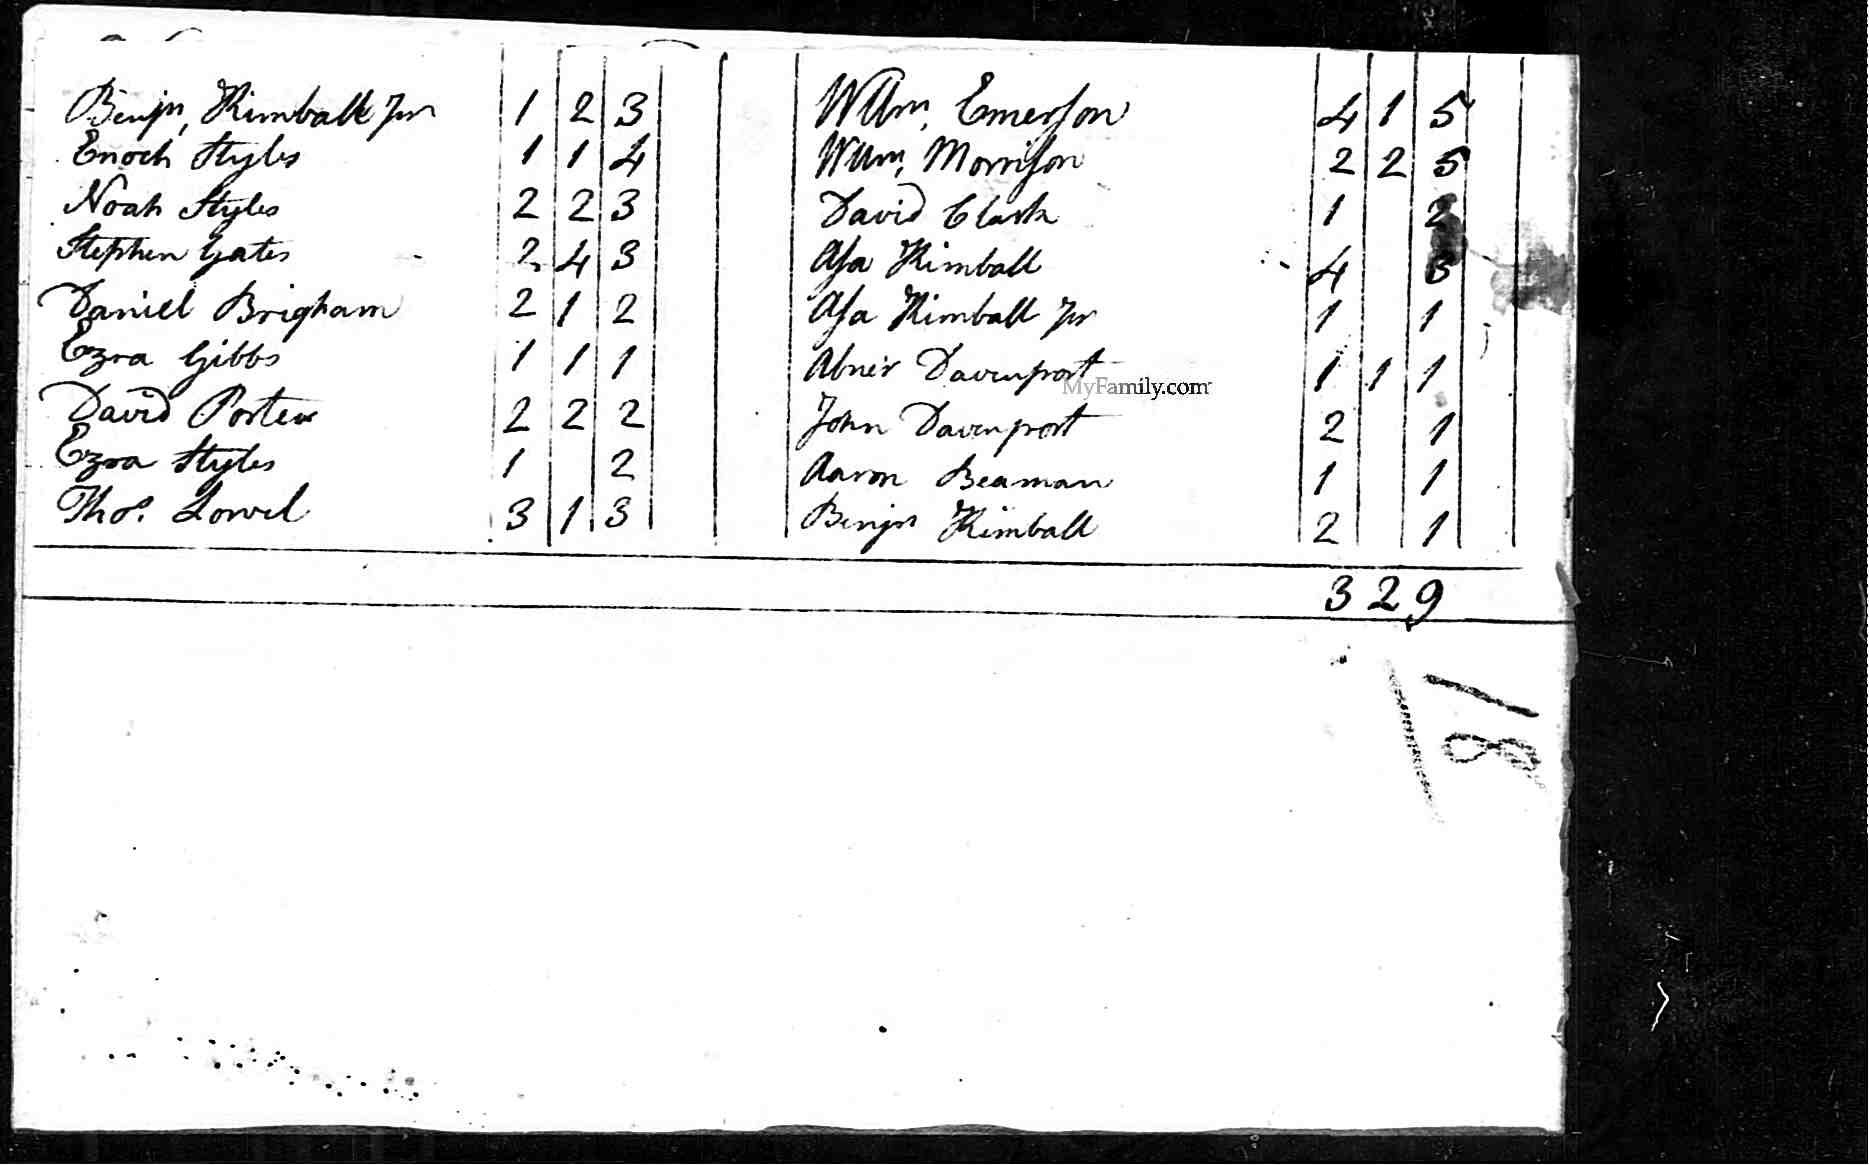 Benjn, Kimball Jnr 1 2 3
Enoch Styles 1 1 4
Noah Styles 2 2 3
Stephen Gates 2 4 3
Daniel Brigham 2 1 2
Ezra Gibbs 1 1 1
David Porter 2 2 2
Ezra Styles 1 2
Thos. Lowel 3 1 3
Willm, Emerson 4 1 5
Willm, Morrison 2 2 5
David Clark 1 2
Asa Kimball 4 3
Asa Kimball Jnr 1 1
Abner Davenport 1 1 1
MyFamily.com
John Davenport 2 1
Aaron Beaman 1 1
Benjn Kimball 2 1
3 2 9
18